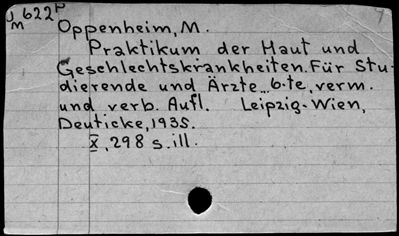 J 622P
M
Oppenheim, M.
Praktikum der Haut und
Geschlechtskrankheiten. Für Stu-
dierende und Ärzte... 6.te, verm.
und verb. Aufl. Leipzig-Wien,
Deuticke, 1935.
X, 298 s. ill.